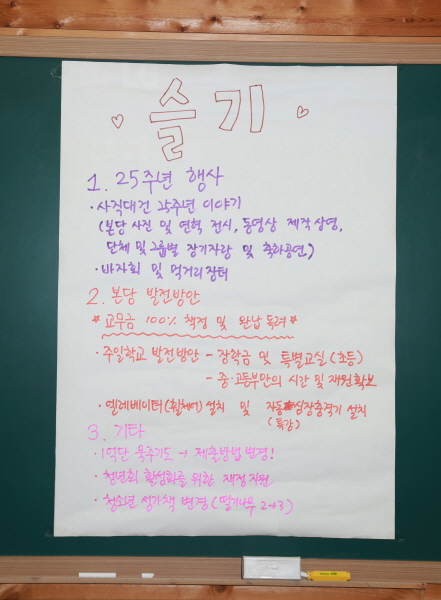 슬기
1. 25주년 행사
· 사직대건 25주년 이야기
(본당 사진 및 연혁 전시, 동영상 제작 상영,
단체 및 그룹별 장기자랑 및 축하공연)
· 바자회 및 먹거리 장터
2. 본당 발전방안
* 교무금 100% 책정 및 완납 독려 *
· 주일학교 발전방안 - 장학금 및 특별교실 (초등)
- 중·고등부만의 시간 및 재원확보
· 엘레베이터(휠체어) 설치 및 자동심장충격기 설치
(특강)
3. 기타
· 1억단 묵주기도 → 제출방법 변경!
· 청년회 활성화를 위한 재정지원
· 청소년 성가책 변경 (떨기나무 2→3)